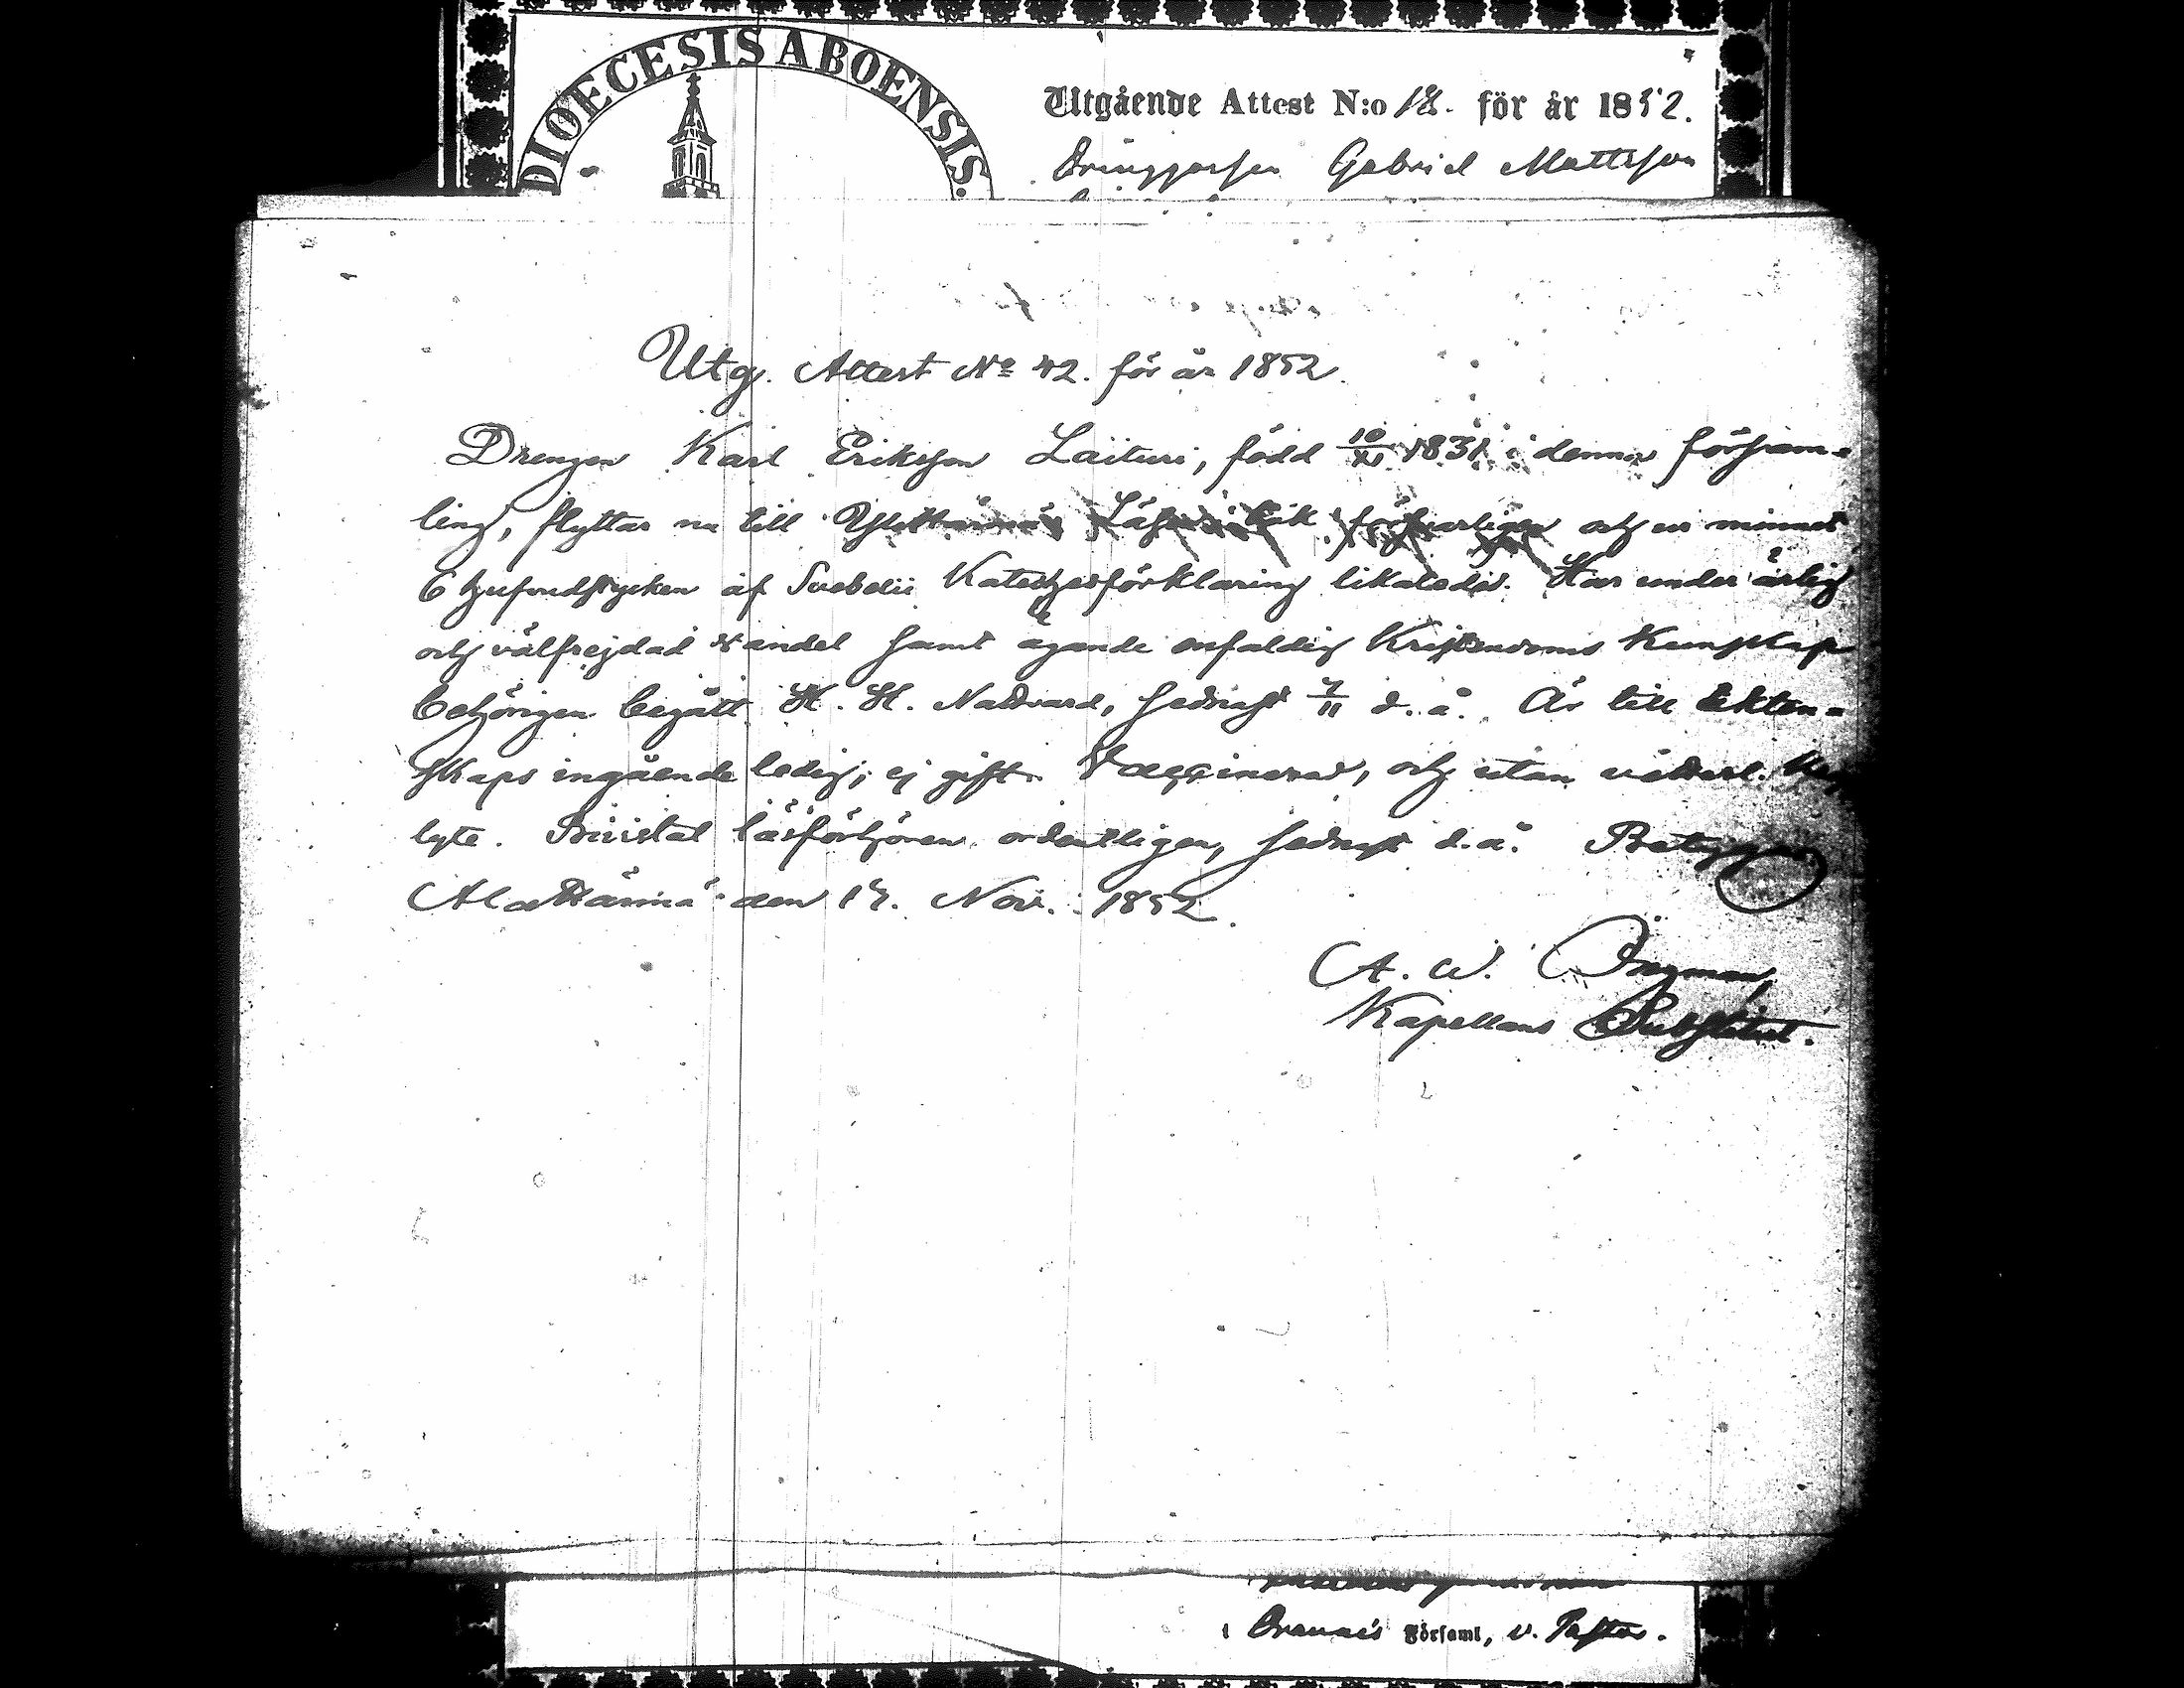 DIOECESIS ABOENSIS.
Utgående Attest N:o 12. för år 1852.
Gabriel Mattsson
Utg. Attest No 42. för år 1852.
Drengen Karl Eriksson Laituri, född 10/XI 1831 i denna försam-
ling, flyttar nu till Ylikärmä; Läser i bok försvarligen och ur minnet
6 hufvudstycken af Svebelii Katechesförklaring likaledes. Har under ärlig
och välfrejdad vandel samt ägande enfaldig Kristendoms Kunskap
behörigen begått H. H. Nattvard, sednast 7/11 d. å. Är till äkten-
skaps ingående ledig; ej gift. Vaccinerad, och utan
lyte. Bivistat läsförhören ordentligen, sednast d. å. Betygar
Alakärmä den 17. Nov. 1852.
A. W. Ingman
Kapellans Substitut.
i Oravais Församl, v. Pastor.